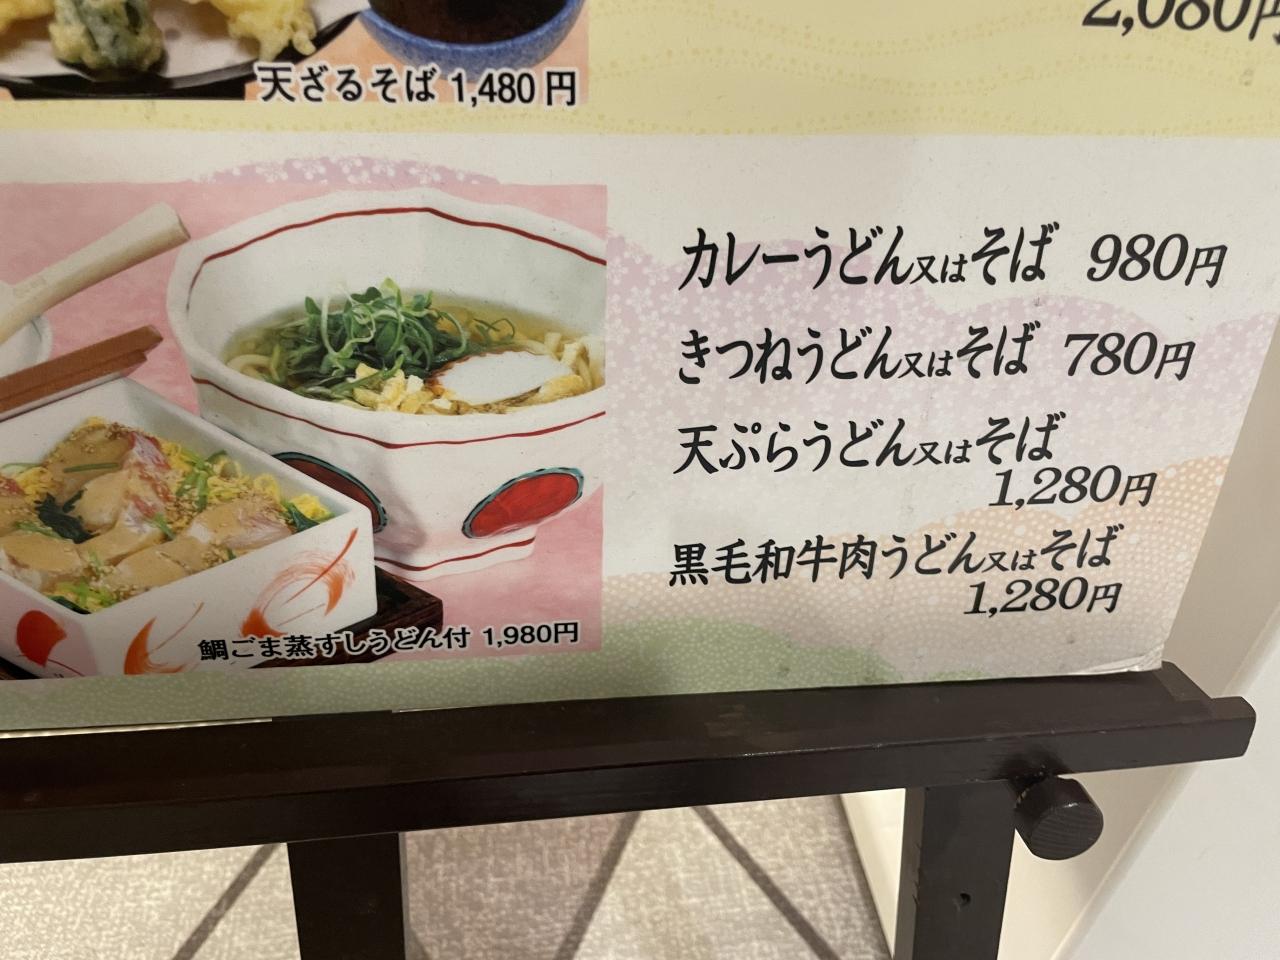 2,080円
天ざるそば 1,480円
カレーうどん又はそば 980円
きつねうどん又はそば 780円
天ぷらうどん又はそば
1,280円
黒毛和牛肉うどん又はそば
1,280円
鯛ごま蒸すしうどん付 1,980円